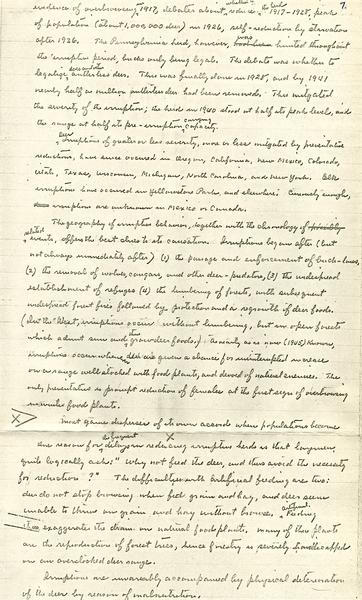 7.
evidence of overbrowsing 1917, debates about reduction 1917-1924, peak
of population (about 1,000,000 deer) in 1926, self-reduction by starvation
after 1926. The Pennsylvania herd, however, was hunted throughout
the irruption period, bucks only being legal. The debate was whether to
legalize antlerless deer. This was finally done in 1928, and by 1941
nearly half a million antlerless deer had been removed. This mitigated
the severity of the irruption; the herd in 1940 stood at half its peak levels, and
the range at half its pre-irruption carrying capacity.
Deer irruptions of greater or less severity, more or less mitigated by preventative
reductions, have since occurred in Oregon, California, New Mexico, Colorado,
Utah, Texas, Wisconsin, Michigan, North Carolina, and New York. Elk
irruptions have occurred in Yellowstone Park, and elsewhere. Curiously enough,
irruptions are unknown in Mexico or Canada.
The geography of irruptive behavior, together with the chronology of
related events, offers the best clues to its causation. Irruptions began after (but
not always immediately after) (1) the passage and enforcement of buck-laws,
(2) the removal of wolves, cougars, and other deer-predators, (3) the widespread
establishment of refuges (4) the lumbering of forests, with subsequent
widespread forest fires followed by protection and a regrowth of deer foods.
(In the West, irruptions occur without lumbering, but in open forests
which admit sun and grow deer foods.) As nearly as is now (1945) known,
irruptions occur when deer are given a chance for uninterrupted increase
on a range well stocked with food plants, and devoid of natural enemies. The
only preventative is prompt reduction of females at the first signs of overbrowsing
on winter food plants.
X Most game disperses of its own accord when populations become
One reason for the frequent delay in reducing irruptive herds is that laymen,
quite logically ask: "Why not feed the deer, and thus avoid the necessity
for reduction?" The difficulties with artificial feeding are two:
deer do not stop browsing when fed grain and hay, and deer seem
unable to thrive on grain and hay without browse. Artificial feeding
thus exaggerates the drain on natural food plants. Many of these plants
are the reproduction of forest trees, hence forestry is severely handicapped
on an overstocked deer range.
Irruptions are invariably accompanied by physical deterioration
of the deer by reason of malnutrition.